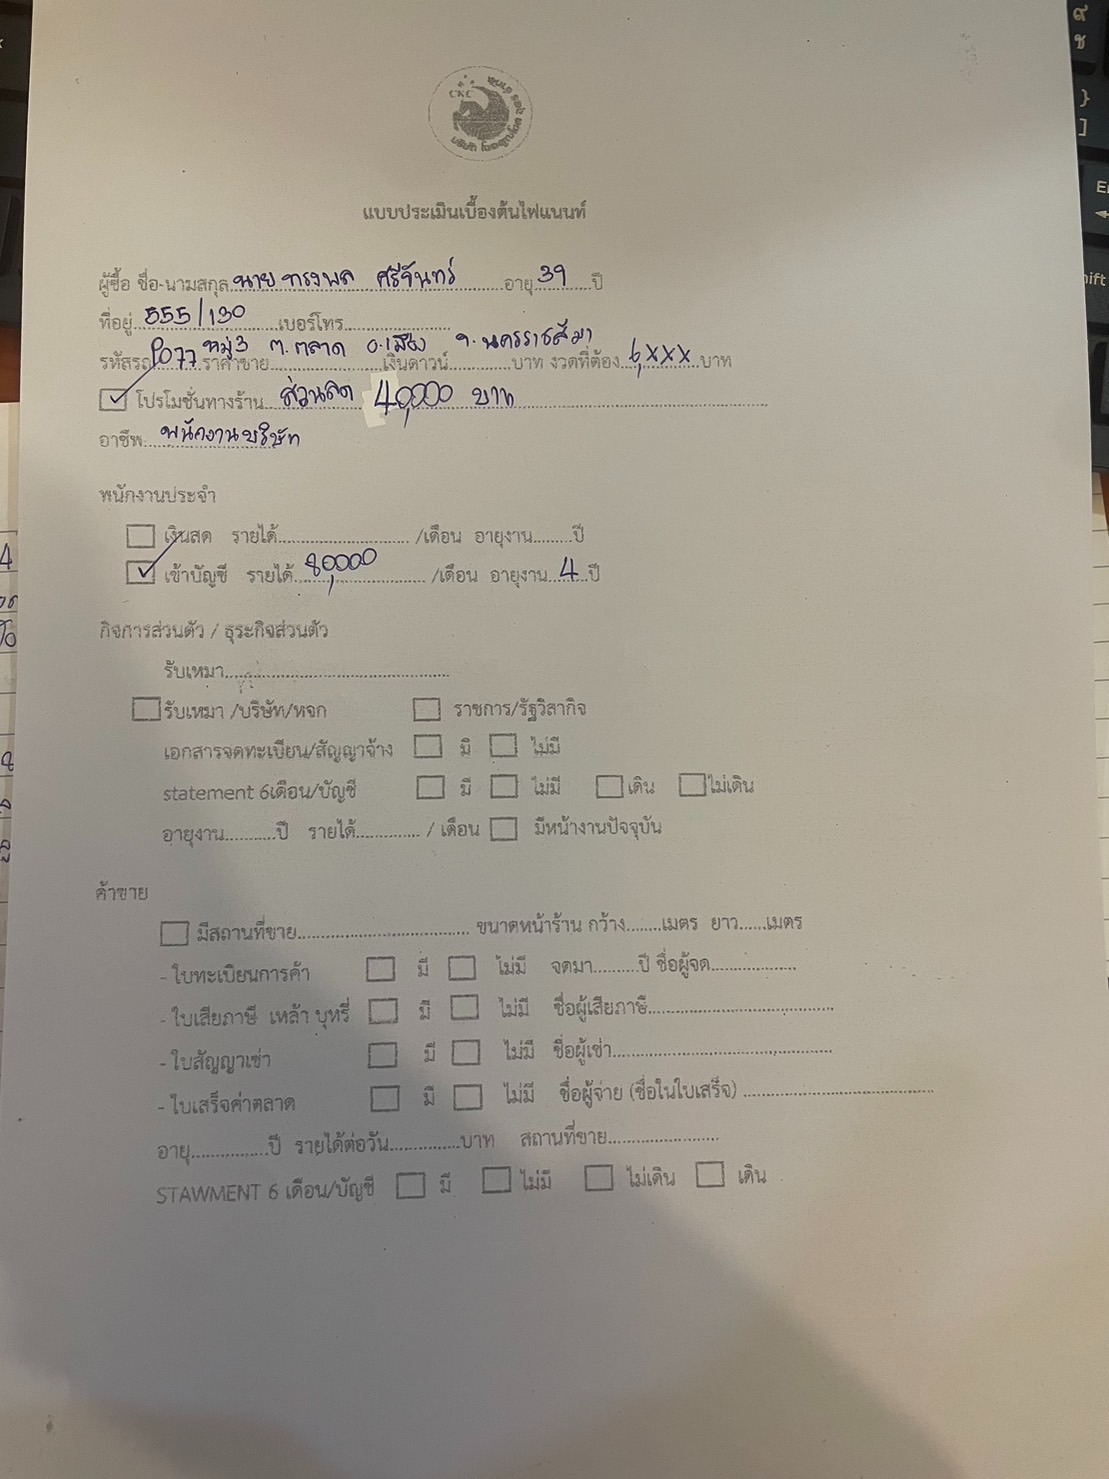 CKC
แบบประเมินเบื้องต้นไฟแนนท์
ผู้ซื้อ ชื่อ-นามสกุล นาย ทรงพล ศรีจันทร์ อายุ 39 ปี
ที่อยู่ 555/130 เบอร์โทร
หมู่3 ต.ตลาด อ.เมือง จ.นครราชสีมา
รหัสรถ P077 ราคาขาย เงินดาวน์ บาท งวดที่ต้อง 6,xxx บาท
โปรโมชั่นทางร้าน ส่วนลด 40,000 บาท
อาชีพ พนักงานบริษัท
พนักงานประจำ
เงินสด รายได้ /เดือน อายุงาน ปี
เข้าบัญชี รายได้ 80,000 /เดือน อายุงาน 4 ปี
กิจการส่วนตัว / ธุระกิจส่วนตัว
รับเหมา
รับเหมา /บริษัท/หจก ราชการ/รัฐวิสากิจ
เอกสารจดทะเบียน/สัญญาจ้าง มี ไม่มี
statement 6เดือน/บัญชี มี ไม่มี เดิน ไม่เดิน
อายุงาน ปี รายได้ / เดือน มีหน้างานปัจจุบัน
ค้าขาย
มีสถานที่ขาย ขนาดหน้าร้าน กว้าง เมตร ยาว เมตร
- ใบทะเบียนการค้า มี ไม่มี จดมา ปี ชื่อผู้จด
- ใบเสียภาษี เหล้า บุหรี่ มี ไม่มี ชื่อผู้เสียภาษี
- ใบสัญญาเช่า มี ไม่มี ชื่อผู้เช่า
- ใบเสร็จค่าตลาด มี ไม่มี ชื่อผู้จ่าย (ชื่อในใบเสร็จ)
อายุ ปี รายได้ต่อวัน บาท สถานที่ขาย
STAWMENT 6 เดือน/บัญชี มี ไม่มี ไม่เดิน เดิน